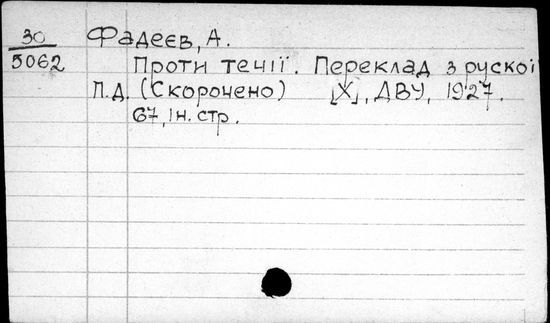 30 Фадеєв, А.
5062 Проти течії. Переклад з рускої
П.Д. (Скорочено) [Х], ДВУ, 1927.
67, Ін. стр.